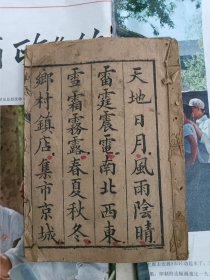 天地日月風雨陰晴
雷霆震電南北西東
雪霜霧露春夏秋冬
鄉村鎮店集市京城